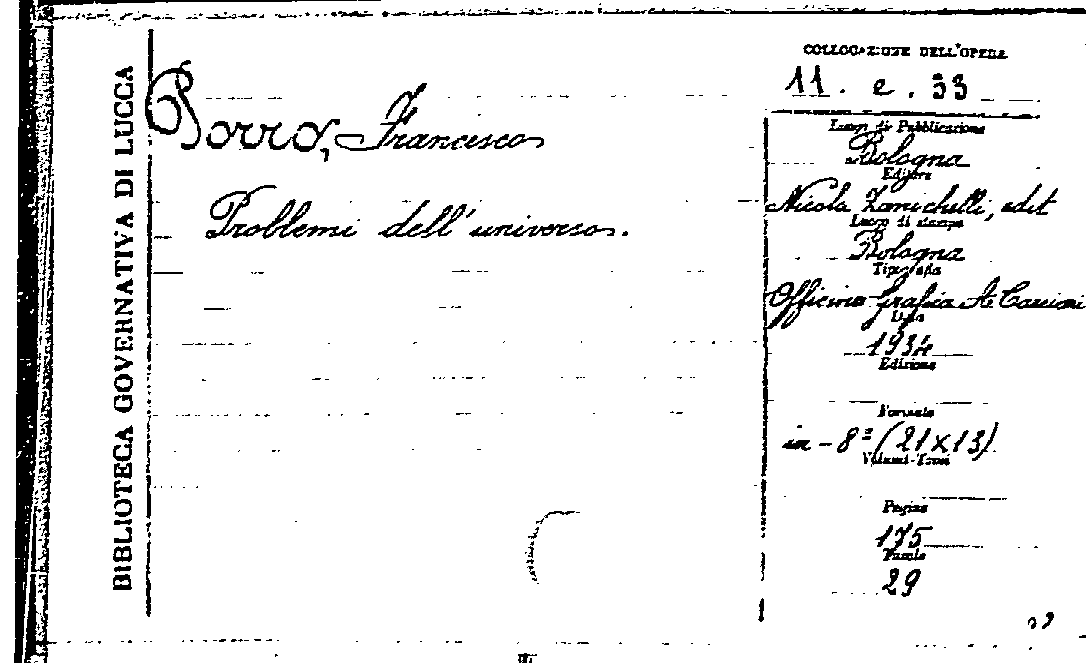 BIBLIOTECA GOVERNATIVA DI LUCCA
Porro, Francesco
Problemi dell'universo.
COLLOCAZIONE DELL'OPERA
11. e. 33
Luogo di Pubblicazione
Bologna
Editore
Nicola Zanichelli, edit
Luogo di stampa
Bologna
Tipografia
Officina Grafica A. Cacciari
Data
1934
Edizione
Formato
in-8º (21x13)
Volumi-Tomi
Pagine
175
Tavole
29